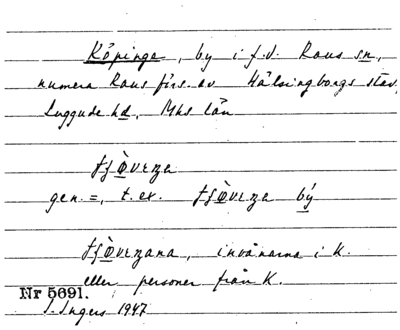 Köpinge, by i f.d. Raus sn,
numera Raus förs. av Hälsingborgs stad,
Luggude hd, Mhs län
gen. =, t. ex. bý
invånarna i K.
eller personer från K.
Nr 5691.
I. Ingers 1947